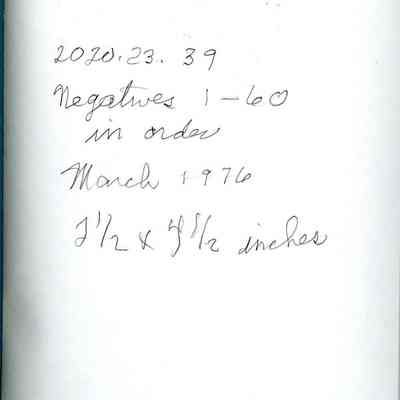 2020.23.39
Negatives 1-60
in order
March 1976
2 1/2 x 4 1/2 inches